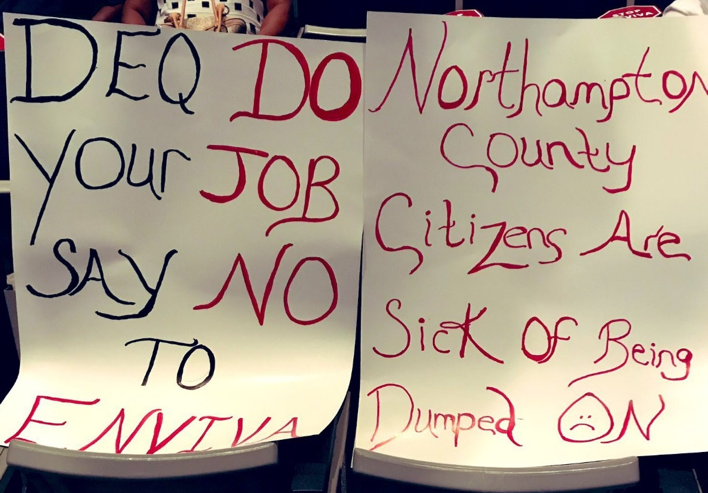 DEQ DO
your JOB
SAY NO
TO
ENVIVA
Northampton
County
Citizens Are
Sick Of Being
Dumped ON